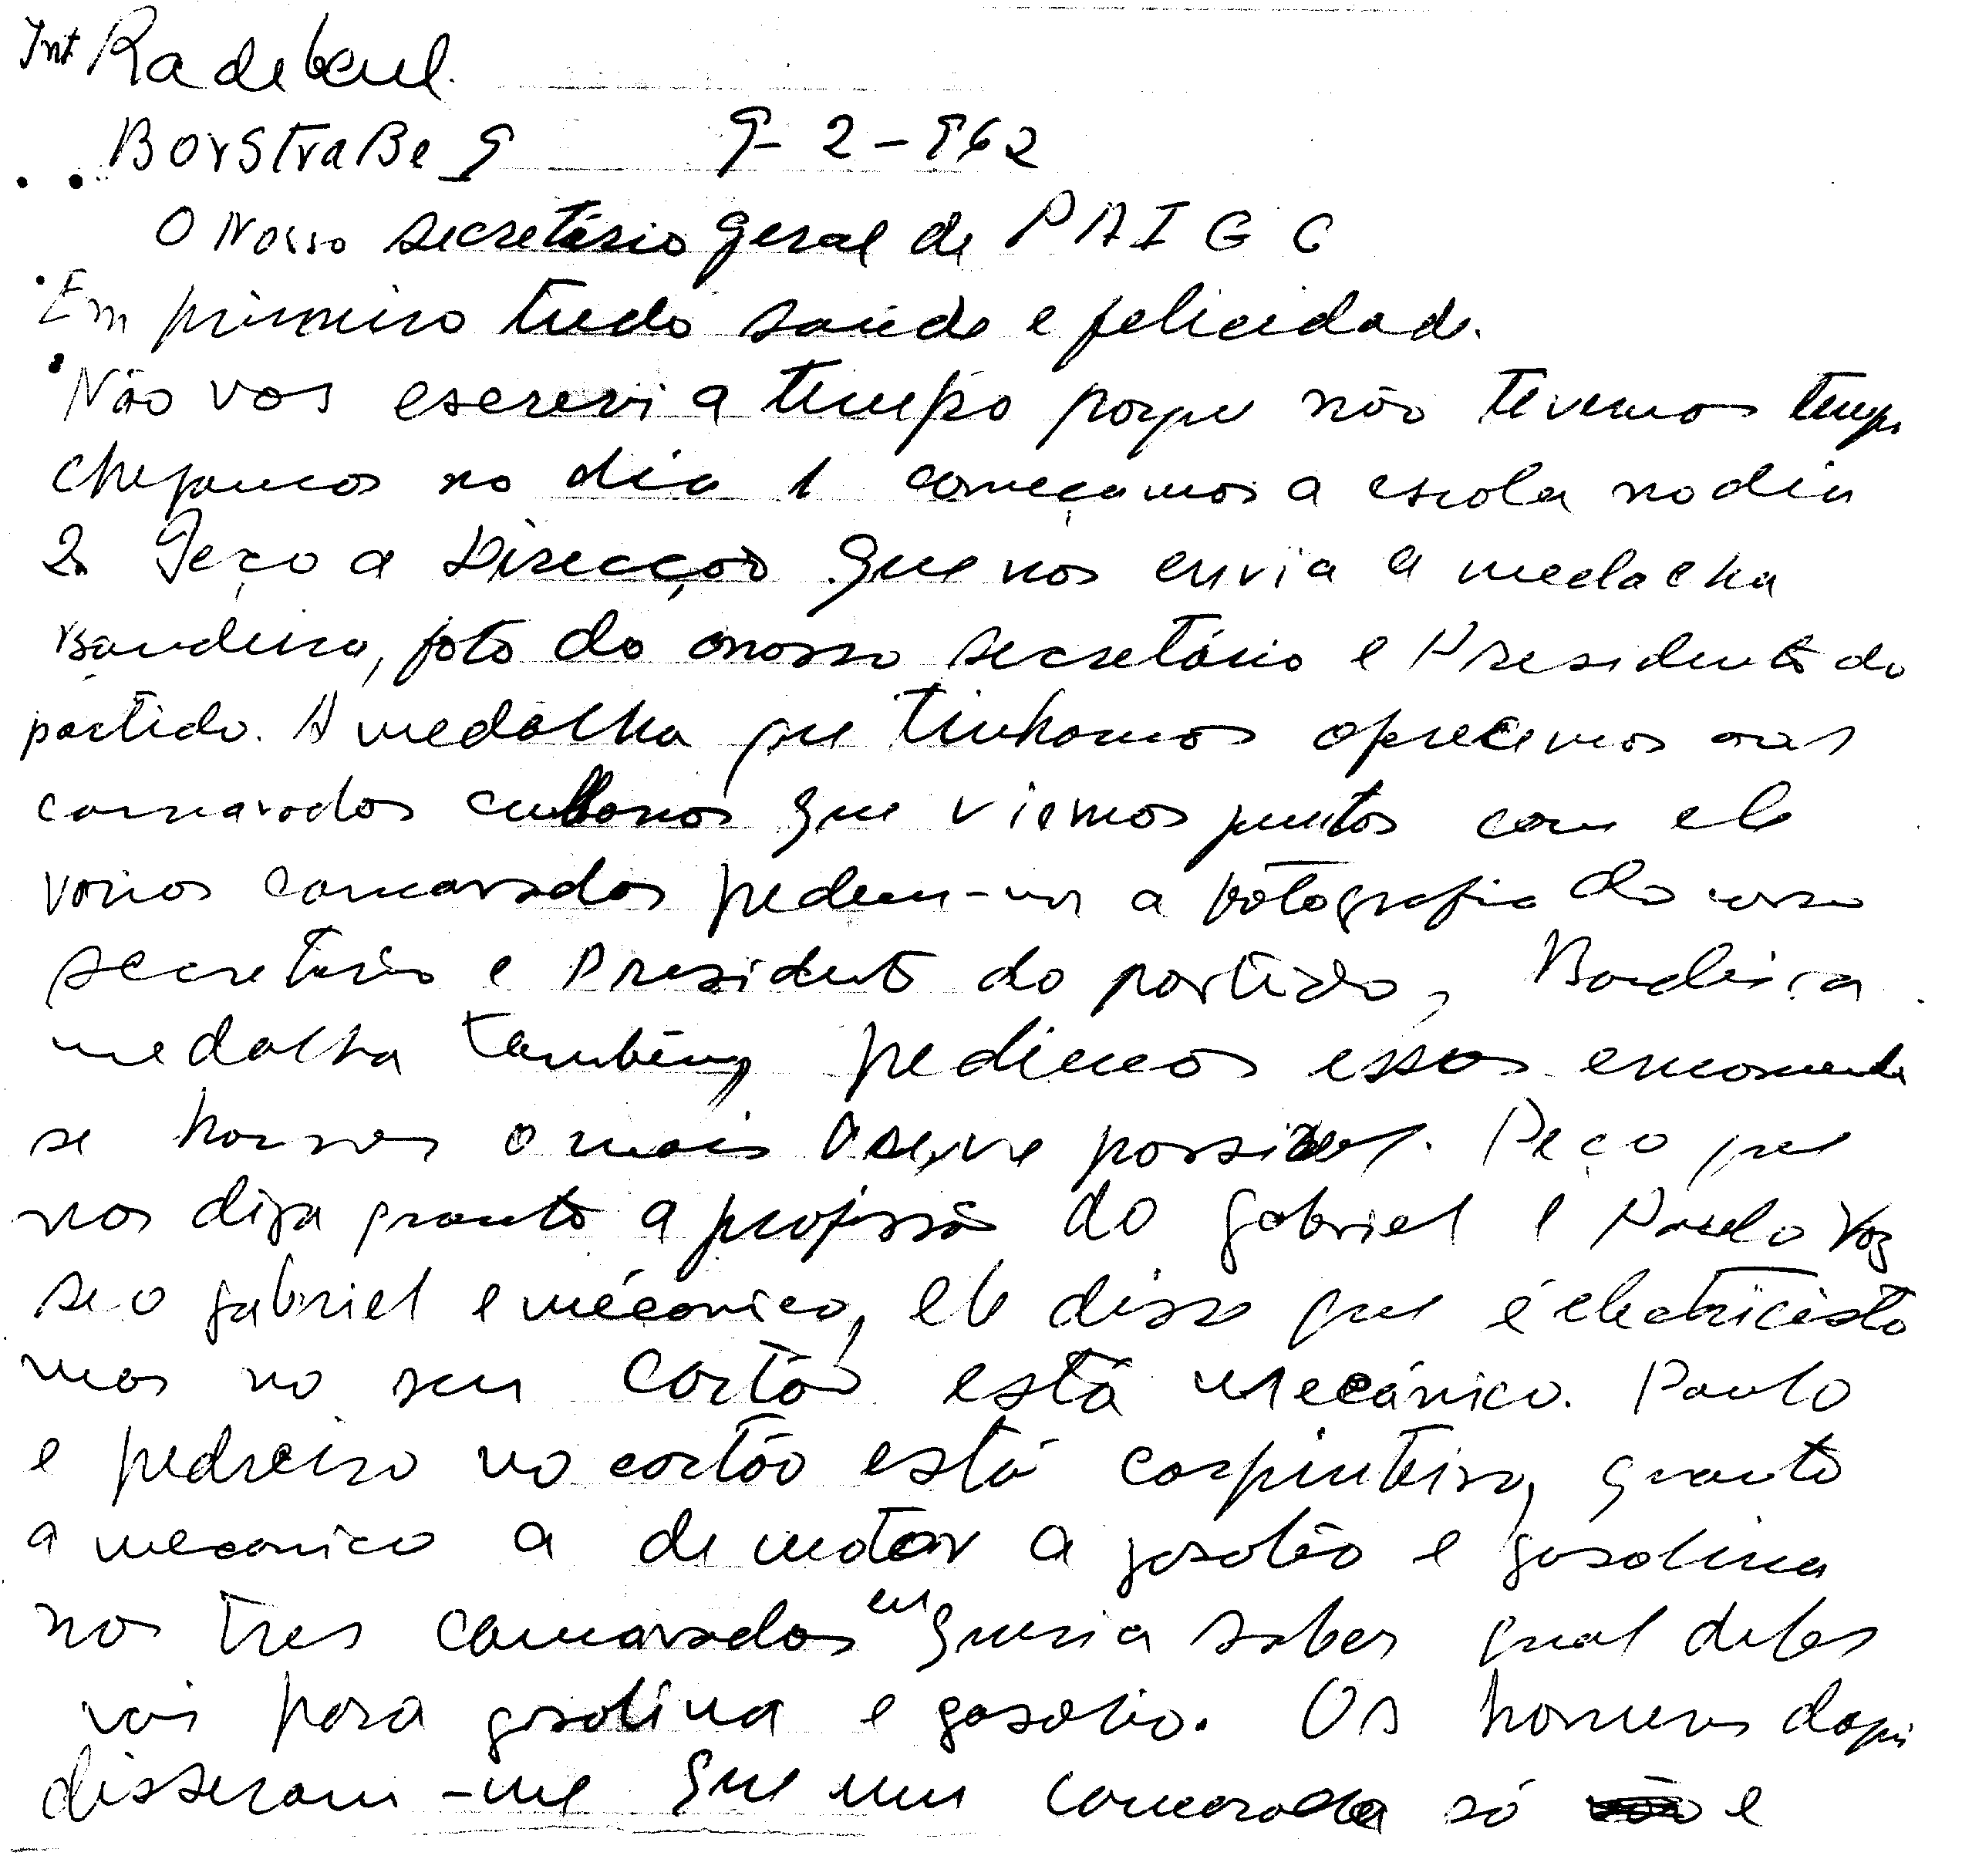 Int Radebeul.
Borstraße 9 9-2-962
O Nosso secretário geral de PAIGC
Em primeiro tudo saúde e felicidade.
Não vos escrevi a tempo porque não tevemos temp
chegamos no dia 1 começamos a escola no dia
2. Peço a Direcção que nos envia a medacha
Bandeira, foto do nosso secretário e Presidente do
partido. A medalha que tinhamos oferecemos aos
camarados cubanos que viemos juntos com ele
varios camarados pedem-nos a fotografia do nosso
secretário e Presidente do partido, Bandeira
medalha também pedimos essas encomenda
se houver o mais breve possivel. Peço que
nos diga quanto a profissão do gabriel e Paulo Voz
se o gabriel e mécanico, ele disse que é electricista
mas no seu cartão está mecánico. Paulo
e pedreiro no cartão está carpinteiro, quanto
a mecanico a de motor a gasoléo e gasolina
nos tres camarados eu queria saber qual deles
vai para gasolina e gasoleo. Os homens daqui
disseram-me que um camarada só e